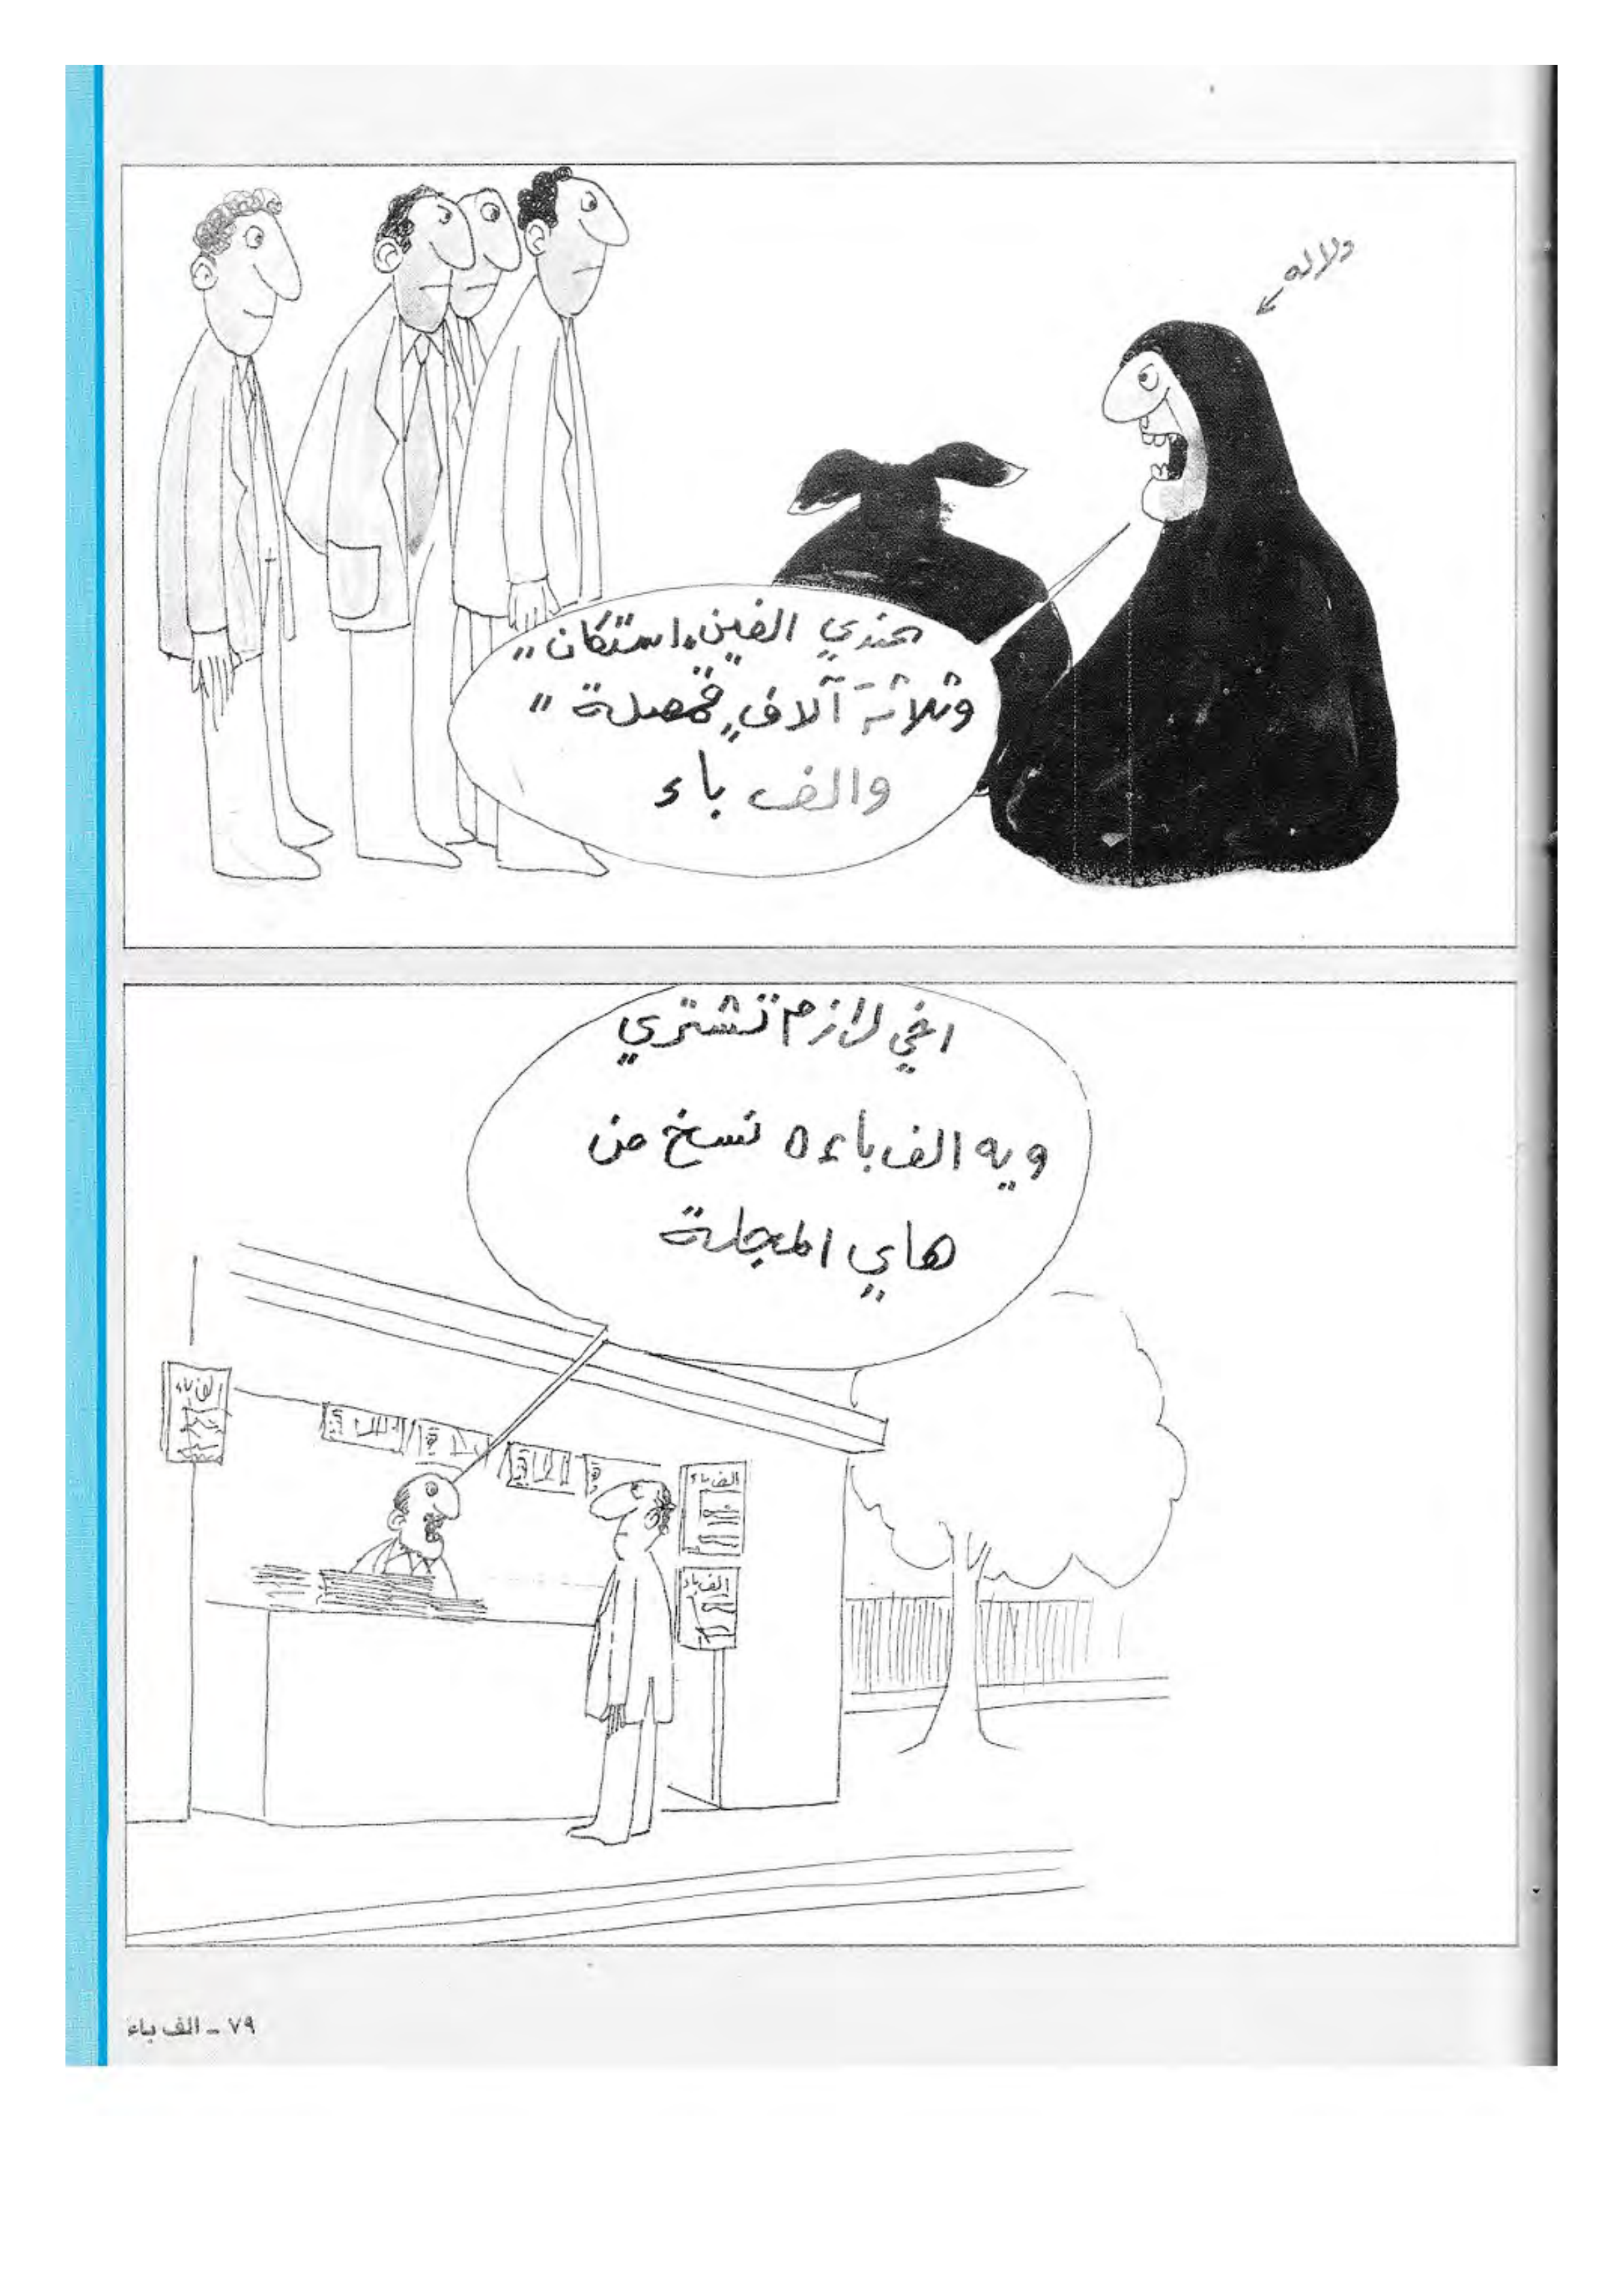 دلاله
عندي الفين "استكان"
وثلاثة آلاف "قمصلة"
والف باء
اخي لازم تشتري
ويه الف باء ٥ نسخ من
هاي المجلة
الف باء
الف باء
الف باء
٧٩ ـ الف باء